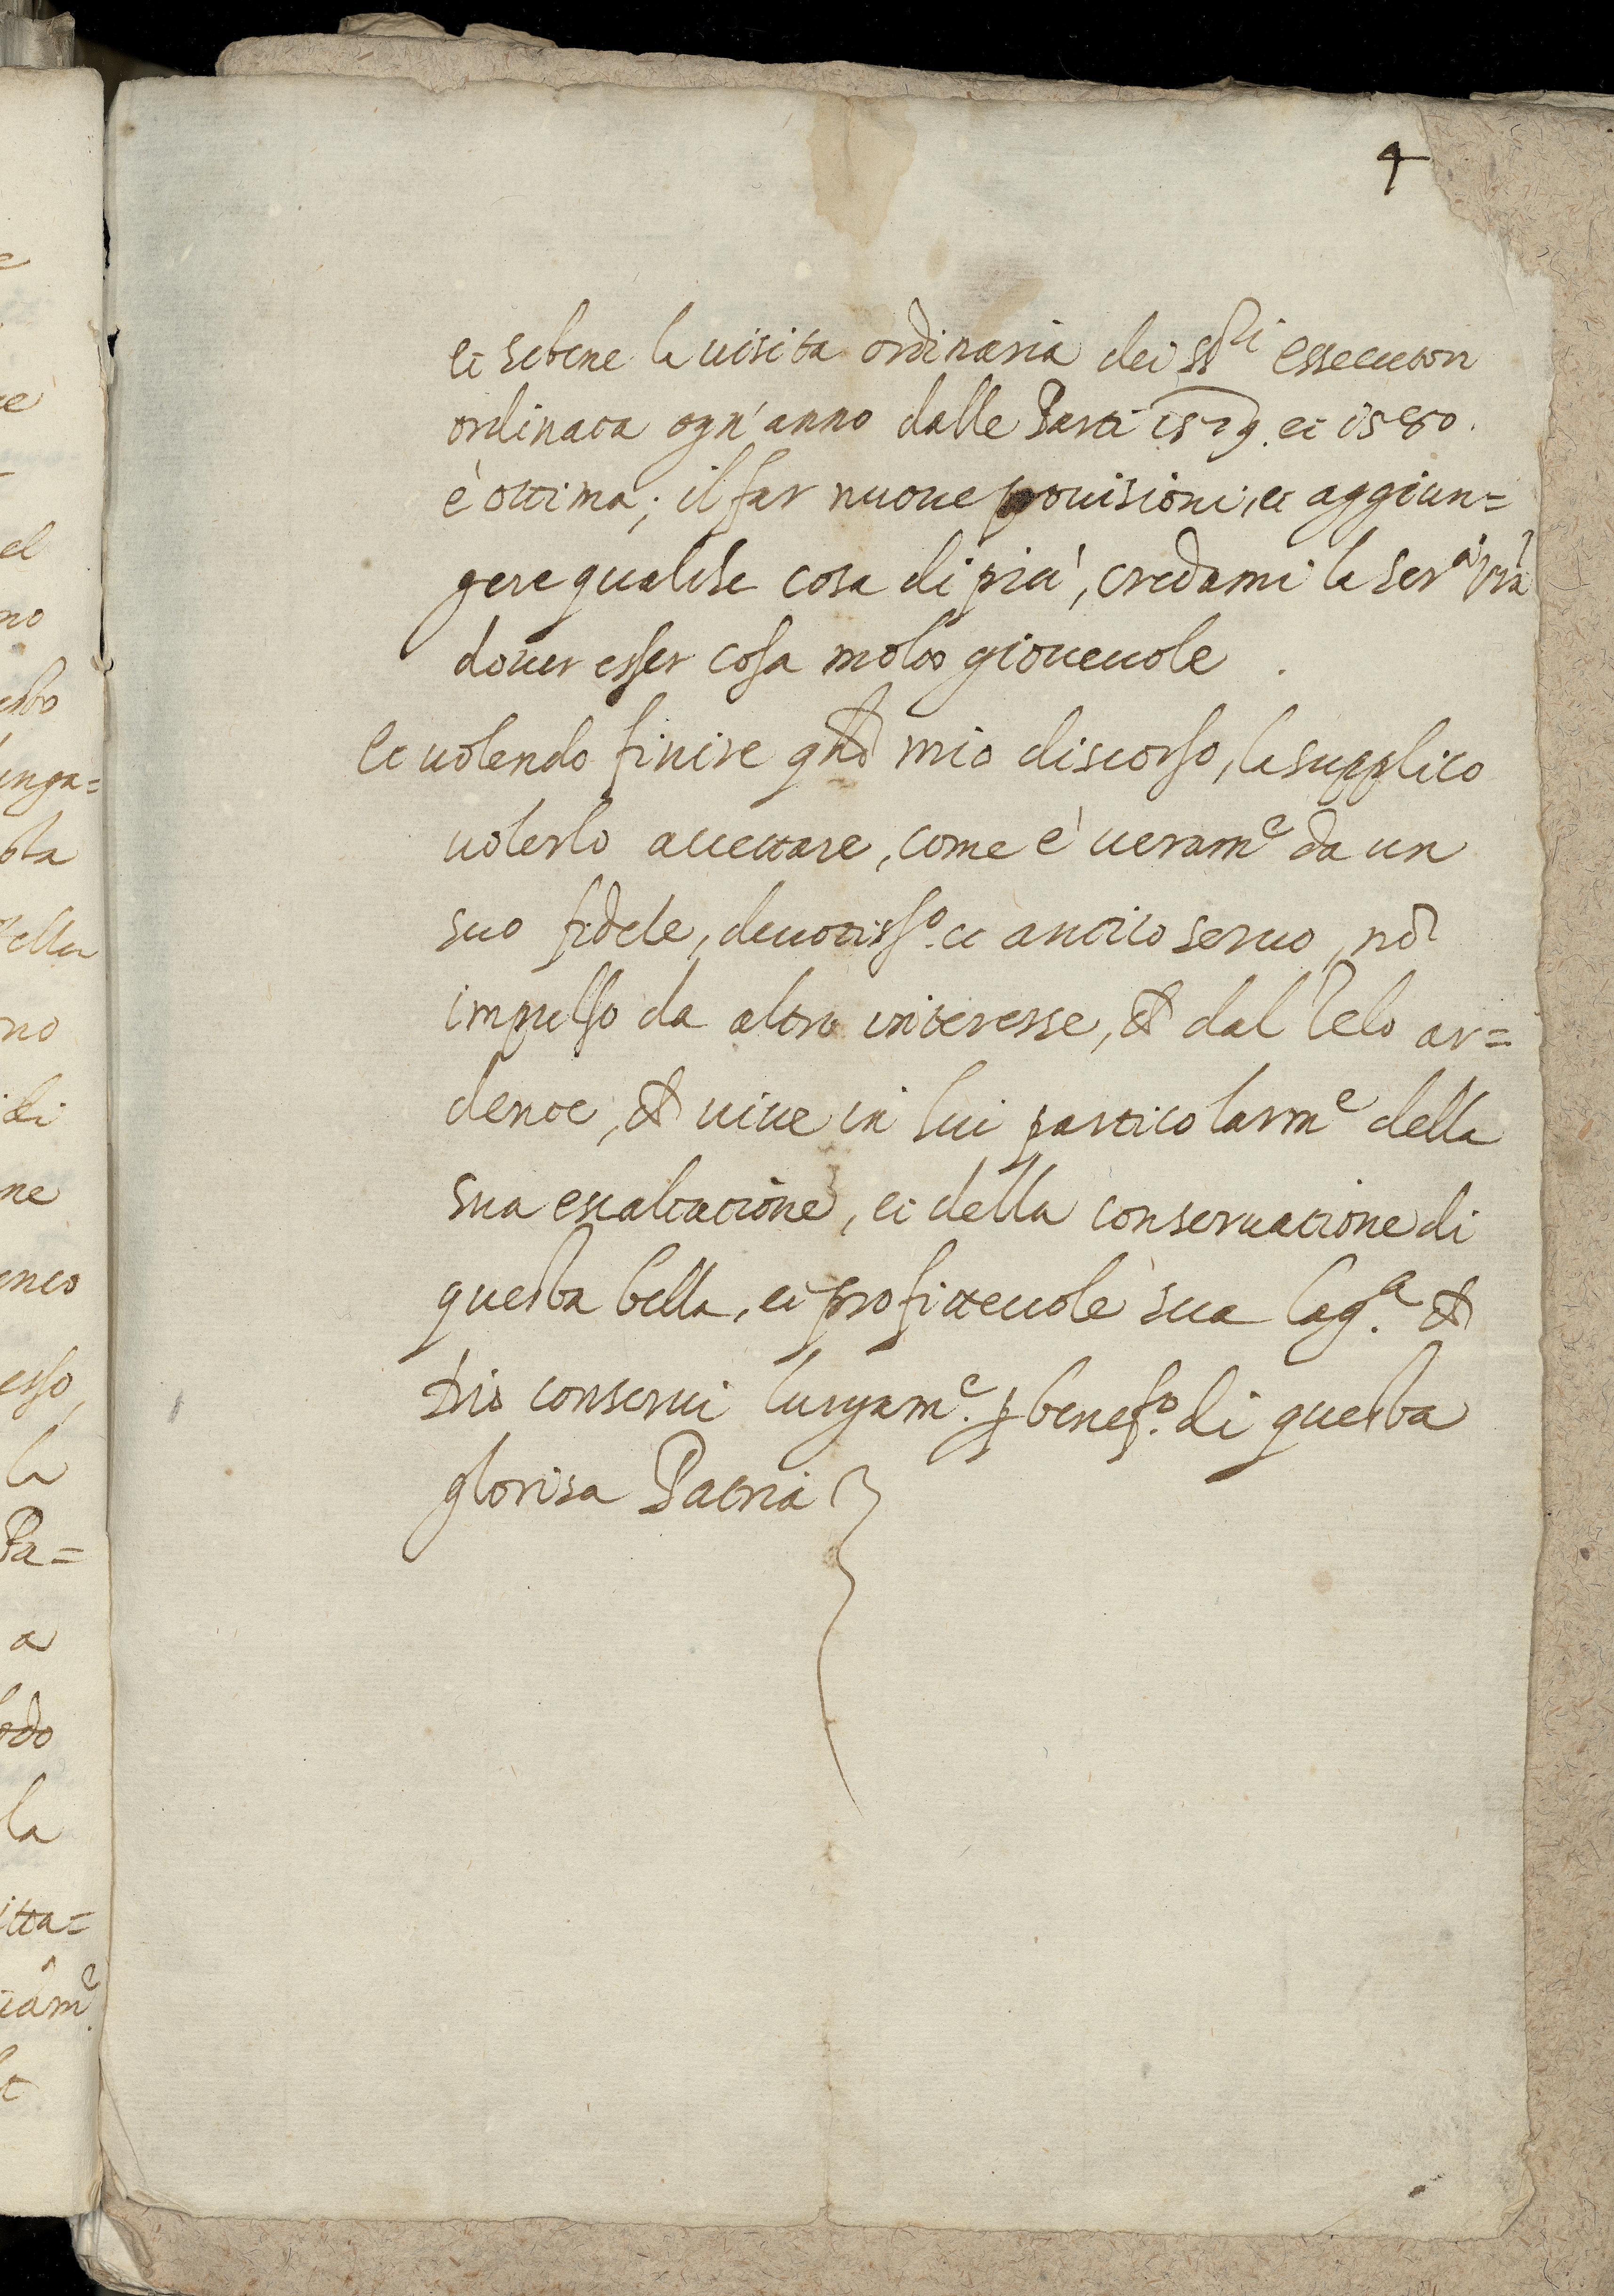 4
et sebene la uisita ordinaria dei ss.ri essecutori
ordinata ogn'anno dalle Parti 1579. et 1580.
è ottima; il far nuoue prouisioni, et aggiun=
gere qualche cosa di più, credami la Ser.à Vrã
douer esser cosa molto gioueuole.
Et uolendo finire q̃sto mio discorso, la supplico
uolerlo accettare, come è ueram.e da un
suo fidele, deuotiss.o et antico seruo, nõ
impulso da altro interesse, ch dal Zelo ar=
dente, ch uiue in lui particolarm.e della
sua essaltatione, et della conseruatione di
questa bella, et profitteuole sua lag.a ch
Dio conserui lungam.e ꝑ benef.o di questa
gloriosa Patria